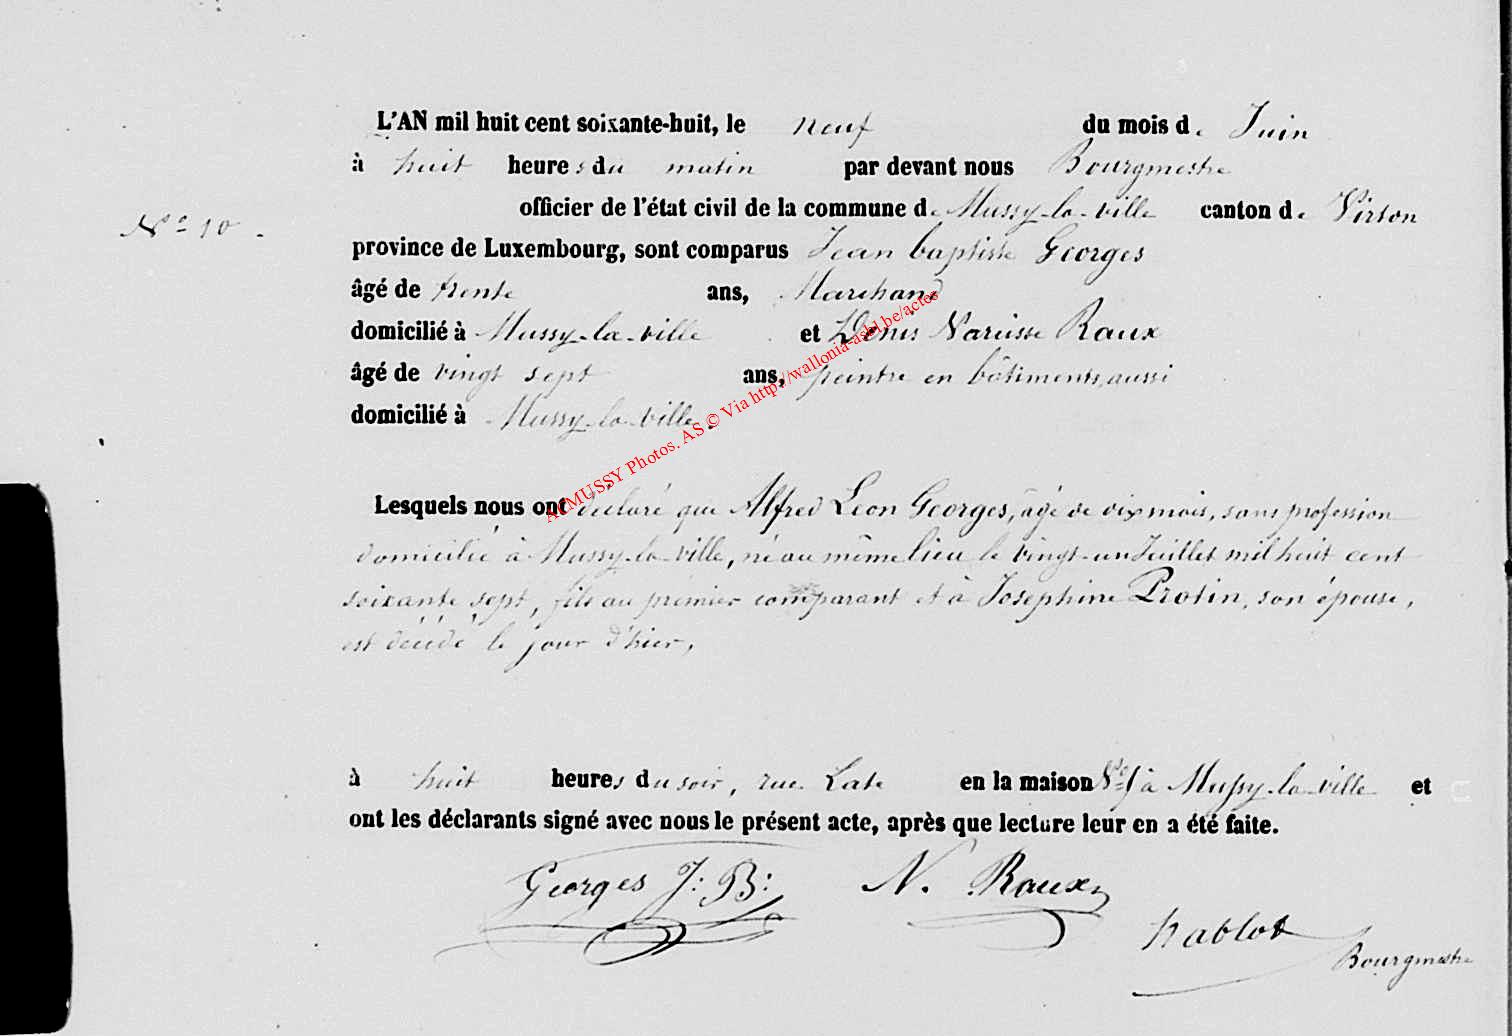 L'AN mil huit cent soixante-huit, le neuf du mois de Juin
à huit heures du matin par devant nous Bourgmestre
officier de l'état civil de la commune de Mussy-la-ville canton de Virton
N° 10
province de Luxembourg, sont comparus Jean baptiste Georges
âgé de trente ans, Marchand
domicilié à Mussy-la-ville et Denis Narcisse Raux
âgé de vingt sept ans, peintre en bâtiments, aussi
domicilié à Mussy-la-ville.
ACMUSSY Photos. AS © Via http://wallonia-asbl.be/actes
Lesquels nous ont déclaré que Alfred Léon Georges, âgé de dix mois, sans profession
domicilié à Mussy-la-ville, né au même lieu le vingt-un Juillet mil huit cent
soixante sept, fils au premier comparant et à Joséphine Protin, son épouse,
est décédé le jour d'hier,
à huit heures du soir, rue Late en la maison N° à Mussy-la-ville et
ont les déclarants signé avec nous le présent acte, après que lecture leur en a été faite.
Georges J: B: N. Raux
Nablot
Bourgmestre